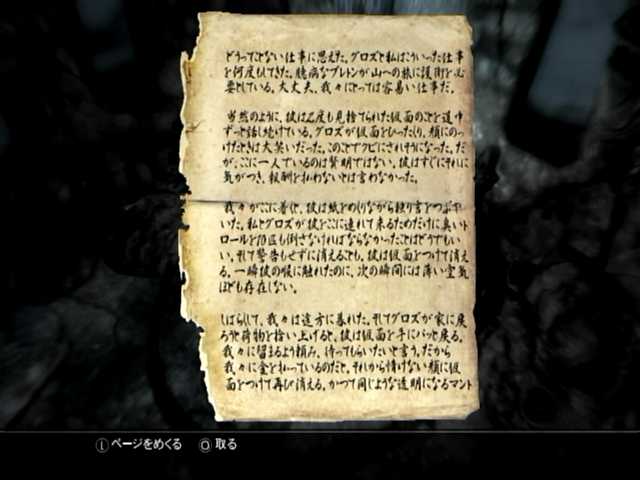 どうってことない仕事に思えた。グロズと私はこういった仕事
を何度もしてきた。臆病なブレトンが山への旅に護衛を必
要としている。大丈夫、我々にとっては容易い仕事だ。
当然のように、彼は2度も見捨てられた仮面のことを道中
ずっと話し続けている。グロズが仮面をひったくり、顔にのっ
けたときは大笑いだった。このことでクビにされそうになった。だ
が、ここに一人でいるのは賢明ではない。彼はすぐにそれに
気がつき、報酬を払わないとは言わなかった。
我々がここに着くと、彼は紙をめくりながら独り言をつぶやい
ていた。私とグロズが彼をここに連れて来るためだけに臭いト
ロールを10匹も倒さなければならなかったことはどうでもい
い。そして警告もせずに消えるとも。彼は仮面をつけて消え
る。一瞬彼の喉に触れたのに、次の瞬間には薄い空気
ほども存在しない。
しばらくして、我々は途方に暮れた。そしてグロズが家に戻
ろうと荷物を拾い上げると、彼は仮面を手にパッと戻る。
我々に留まるよう頼み、待ってもらいたいと言う。だから
我々に金を払っているのだと。それから情けない顔に仮
面をつけて再び消える。かつて同じような透明になるマント
ページをめくる
取る